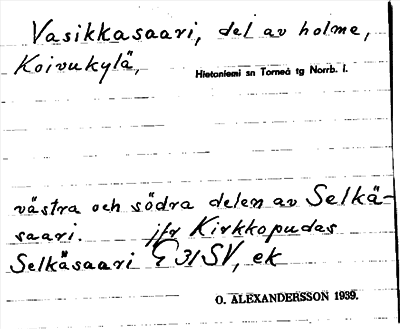 Vasikkasaari, del av holme,
Koivukylä,
Hietaniemi sn Torneå tg Norrb. l.
västra och södra delen av Selkä-
saari. jfr Kirkkopudas
Selkäsaari SV, ek
O. ALEXANDERSSON 1939.